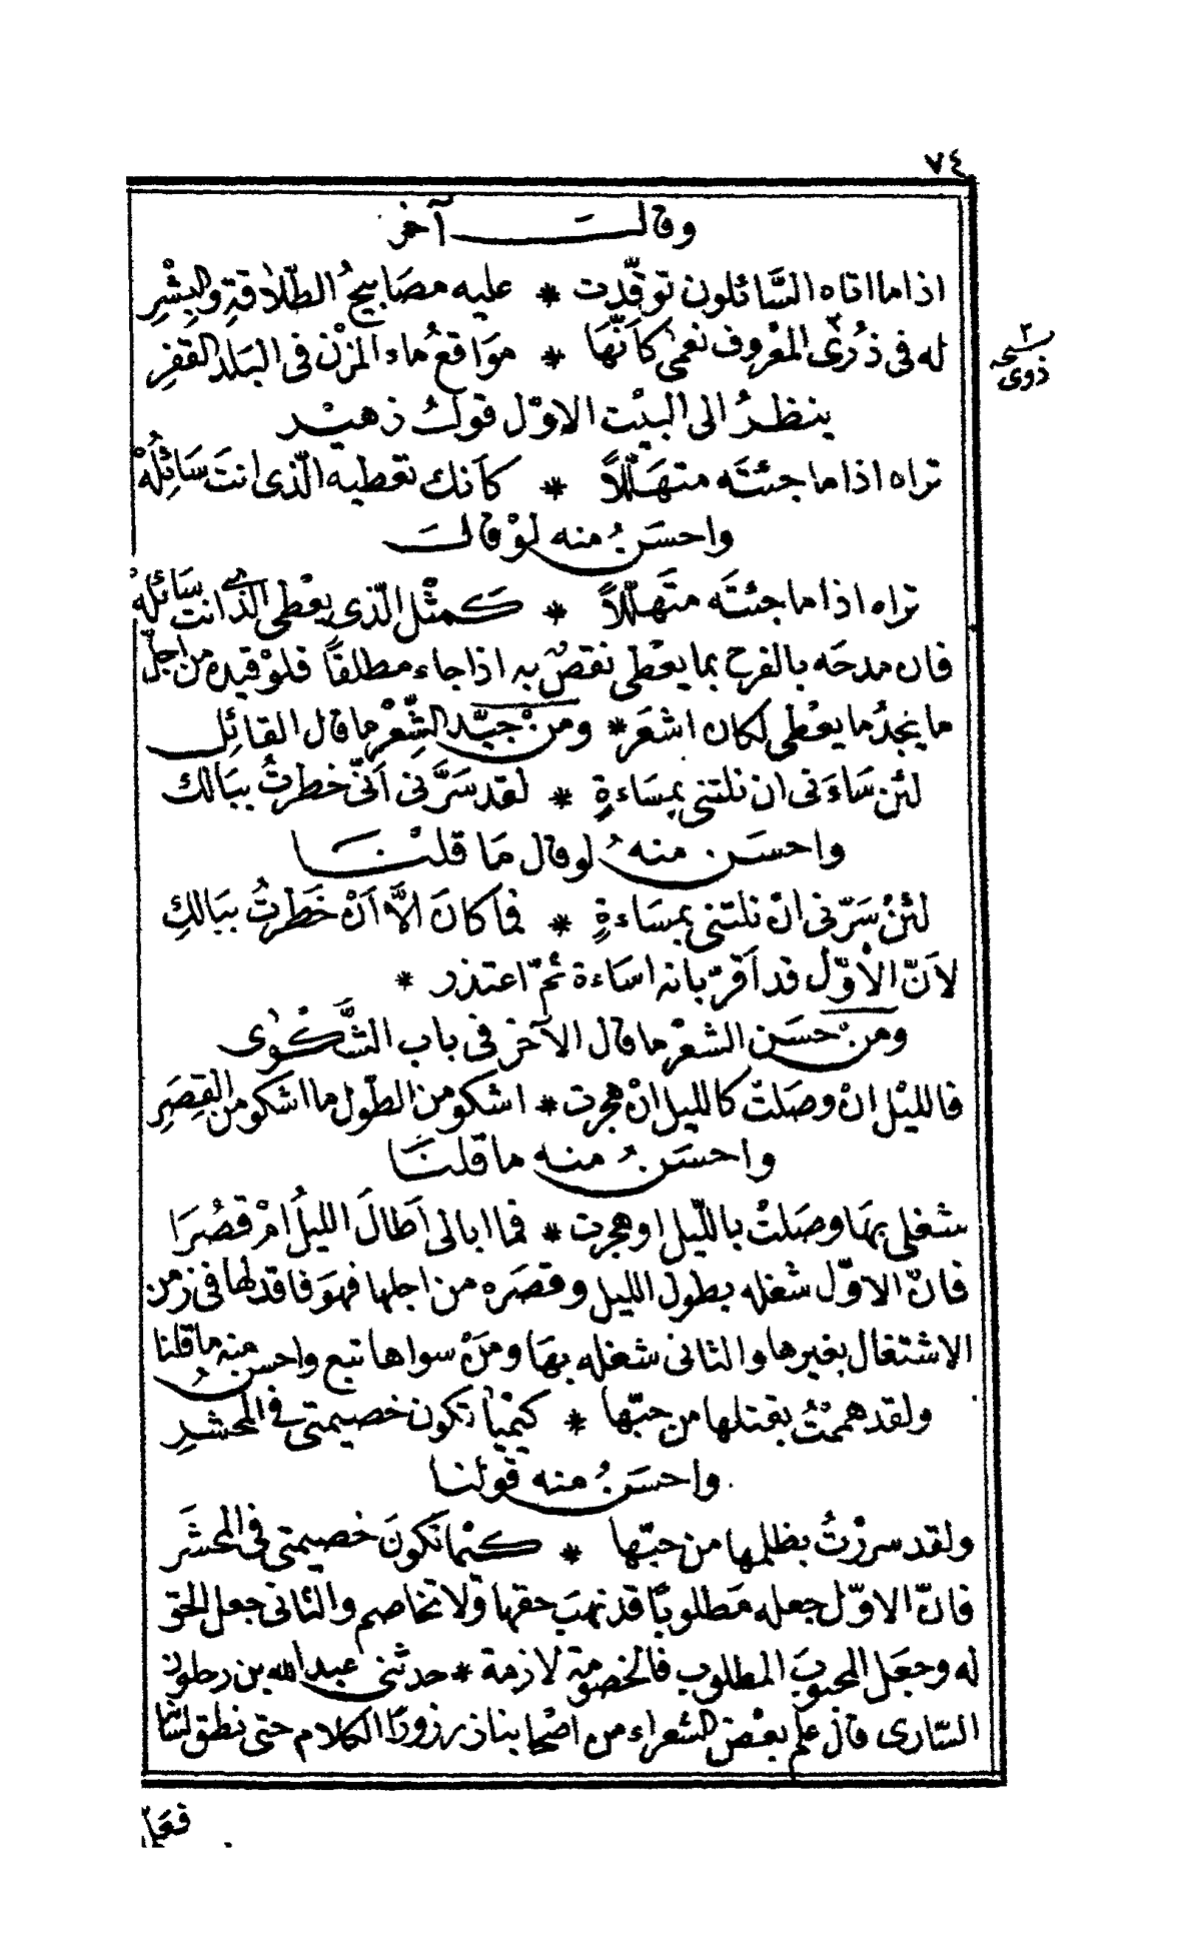 ٧٤
وقالـــــت آخر
اذا ما اتاه السَّائلون توقّدت * عليه مصَابيحُ الطّلاقةِ والبِشْرِ
له فى ذُرَى المعْروف نعمىٰ كاَنَّهَا * موَاقعُ ماء المزْن فى البَلد القفرِ
٢ نسخه
ذوى
ينظـرُ الى البيْت الاوّل قولُ زهيـر
تراه اذا ما جئتَه متهَـلّلاً * كاَنك تعْطيه الّذى انتَ سَائِلُهْ
واحسَنُ منه لوْ قالَ
تراه اذا ما جئتَه متَهـلّلاً * كمثْل الّذى يعْطى الّذى انت سَائلهْ
فان مدحَه بالفرح بما يعْطى نقصٌ به اذا جاء مطلقاً فلوْ قيده من اجلّ
ما ينجدُ ما يعْطى لكان اشعَر * ومنْ جيّد الشِّعْر ما قال القائِل
لئن سَاءَنى ان نلتنى بمسَاءةٍ * لقد سَرَّنى اَنّى خطرتُ ببَالك
واحسَن منهُ لو قال مَا قلنَا
لئنْ سَرّنى انْ نلتنى بمسَاءةٍ * فما كانَ الاَّ اَنْ خَطرتُ ببَالكِ
لاَنّ الاوّل قد اَقرّ بانه اسَاءة ثمّ اعتذر *
ومنْ حسَن الشعْر ما قال الآخر فى باب الشَّكْوٰى
فالليْل انْ وصَلتْ كالليل انْ هجرت * اشكو من الطّول ما اشكو من القِصَرِ
واحسَنُ منه ما قلنَا
شغلى بهَا وصَلتْ بالليْل او هجرت * فما ابالى اَطَالَ الليلُ امْ قصُرَا
فانّ الاوّل شغله بطول الليل وقصَره من اجلها فهوَ فاقد لها فى زمن
الاشتغال بغيرها والثانى شغله بهَا ومَنْ سواها تبع واحسنُ منه ما قلنا
ولقد هممْتُ بقتلها من حبّها * كيْما تكون خصيمتى فى المحشرِ
واحسَنُ منه قولنا
ولقد سررْتُ بظلمها من حبّها * كيْما تكونَ خصيمتى فى المحشَر
فانّ الاوّل جعله مَطلوباً قد نهبَ حقها ولا تخاصم والثانى جعل الحق
له وجعَل المحبوبَ المطلوب فالخصومة لازمة * حدثنى عبد الله بن رحلون
السّارى قال علم بعْض الشعراء من اصْحابنا ذرزورًا الكلام حتى نطق لسَانا
فعَل